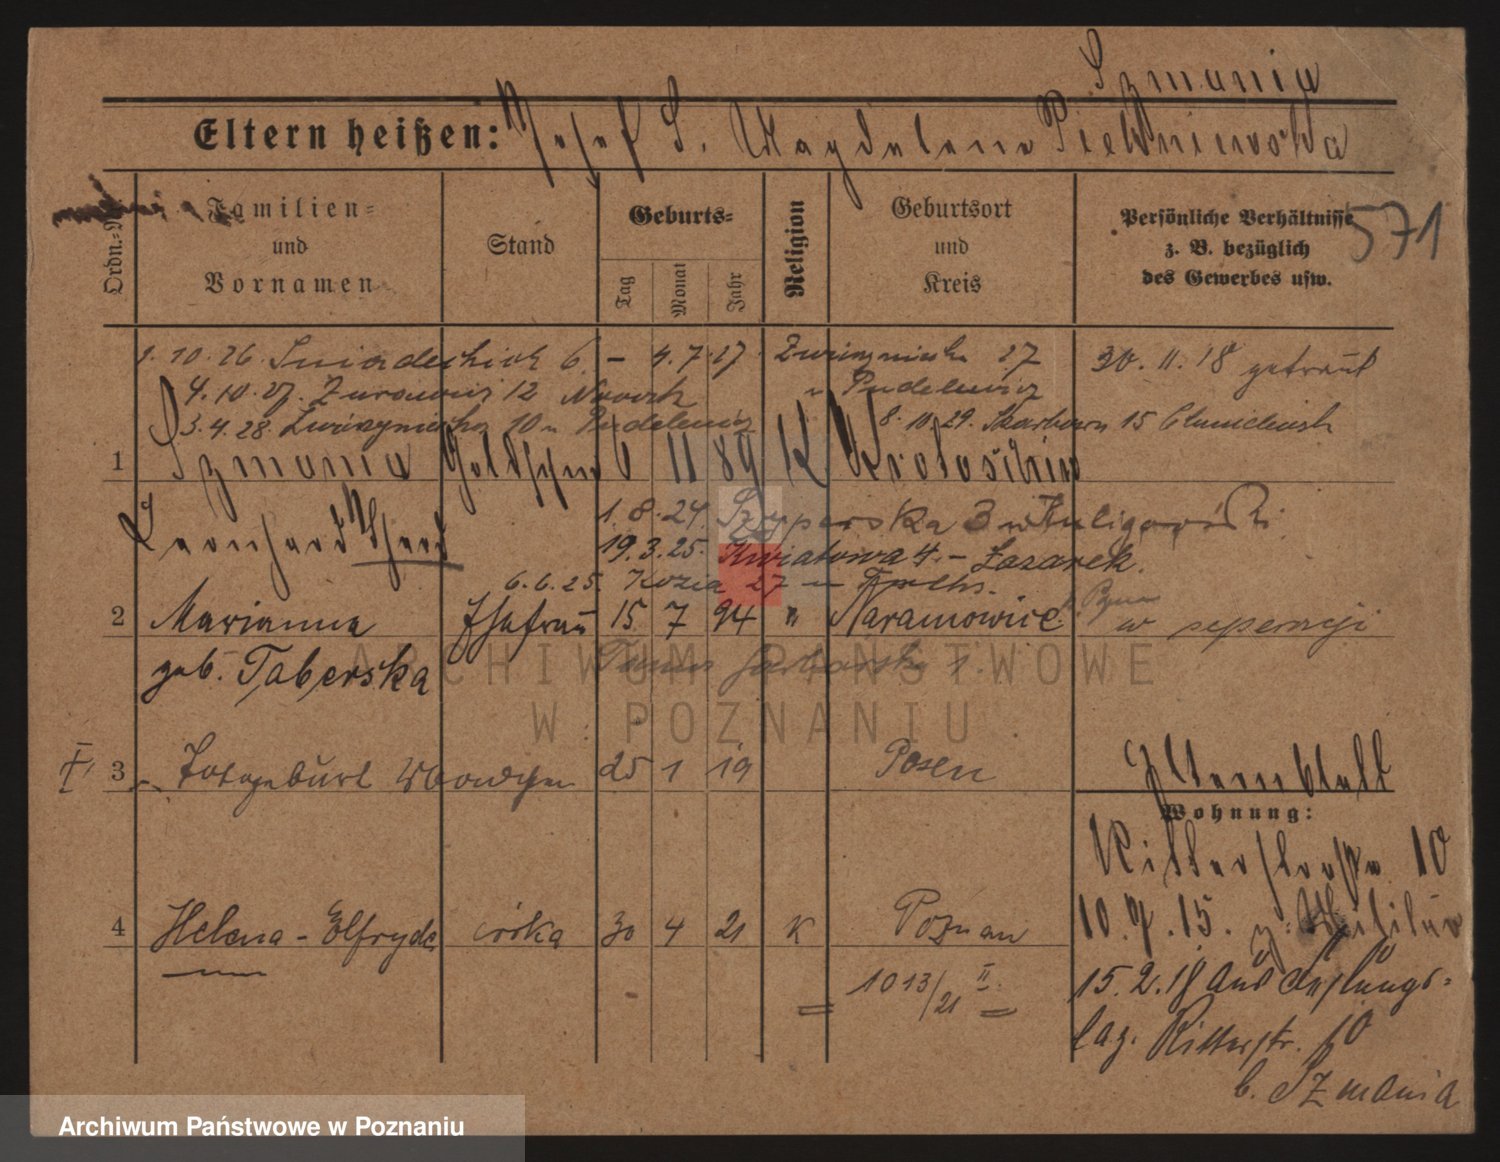 Szmania
Eltern heißen: Josef S. Magdalena Piekniewska
571
Ordn.-Nr.
Familien-
und
Vornamen
Stand
Geburts-
Tag
Monat
Jahr
Religion
Geburtsort
und
Kreis
Persönliche Verhältnisse
z. B. bezüglich
des Gewerbes usw.
1.10.26. Sniadeckich 6 – 4.7.27 Zwierzyniecka 27 30.11.18 getraut
4.10.27. Żurawia 12 Nowak u Pudelewicz
3.4.28. Zwierzyniecka 10 u Pudelewicz 8.10.29. Skarbowa 15
1 Szmania Goldschm 6 11 89 K Krotoschin
Leonhard
1.8.24. Szyperska 3 u Kuligowski
19.3.25. Kwiatowa 4 – Lazarek.
6.6.25. Kozia 27 – Fuchs.
2 Marianna Ehefrau 15 7 94 " Naramowice w seperacji
geb. Taberska
3 Totgeburt Mädchen 25 1 19 Posen
Elternblatt
Wohnung:
Ritterstraße 10
4 Helena - Elfryda córka 30 4 21 K Poznan
10.7.15. z. Militär
1013/21 II.
15.2.18 aus
laz. Ritterstr. 10
b. Szmania
ARCHIWUM PAŃSTWOWE
W POZNANIU
Archiwum Państwowe w Poznaniu